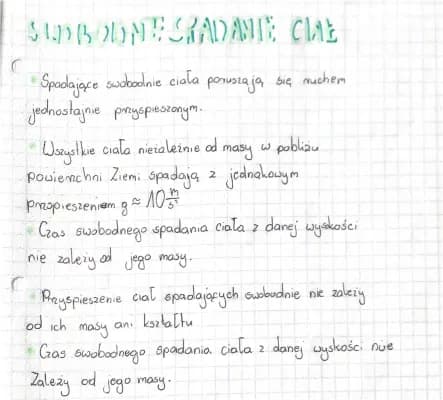 SWOBODNE SPADANIE CIAŁ
Spadające swobodnie ciała poruszają się ruchem
jednostajnie przyspieszonym.
Wszystkie ciała niezależnie od masy w pobliżu
powierzchni Ziemi spadają z jednakowym
przyspieszeniem g ≈ 10 m/s²
Czas swobodnego spadania ciała z danej wysokości
nie zależy od jego masy.
Przyspieszenie ciał spadających swobodnie nie zależy
od ich masy ani kształtu
Czas swobodnego spadania ciała z danej wysokości nie
zależy od jego masy.